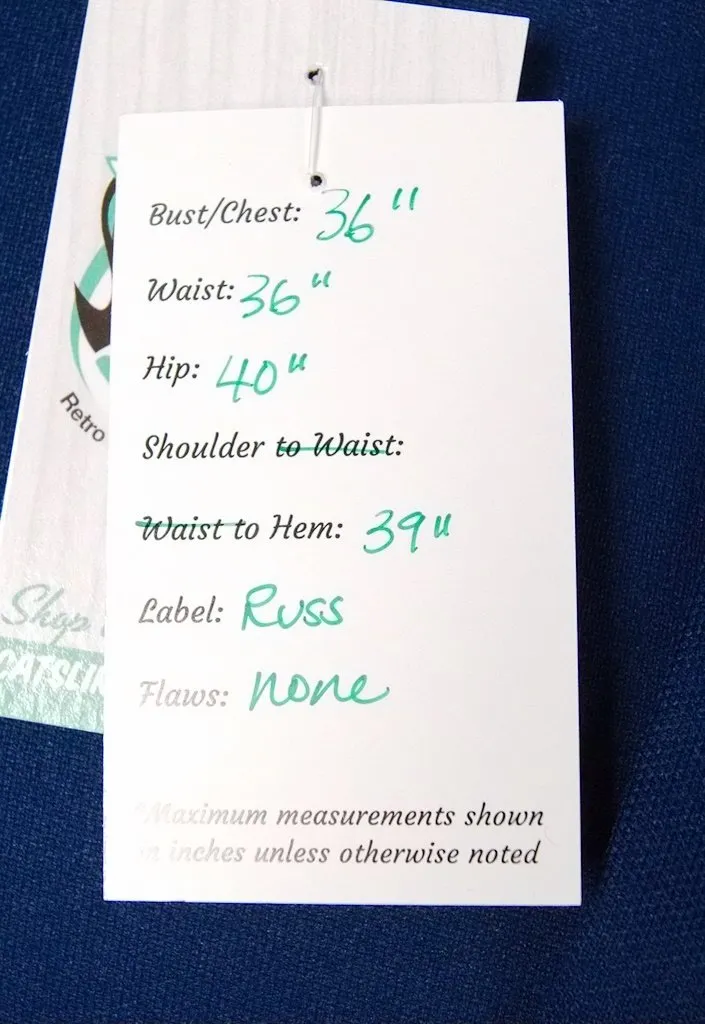 Bust/Chest: 36"
Waist: 36"
Hip: 40"
Shoulder to Waist:
Waist to Hem: 39"
Label: Russ
Flaws: none
*Maximum measurements shown
in inches unless otherwise noted
Retro
Shop